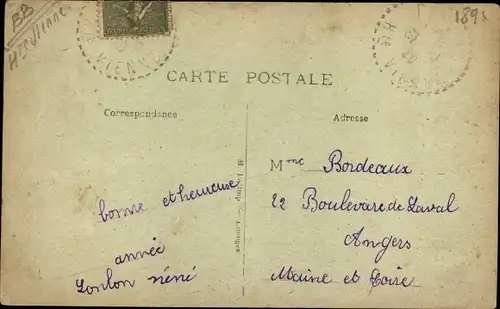 BB
Hte Vienne
189
Hte VIENNE
VIENNE
CARTE POSTALE
Correspondance
Adresse
Mme Bordeaux
bonne et heureuse
22 Boulevard de Laval
Angers
année
Maine et Loire
Lonlon néné